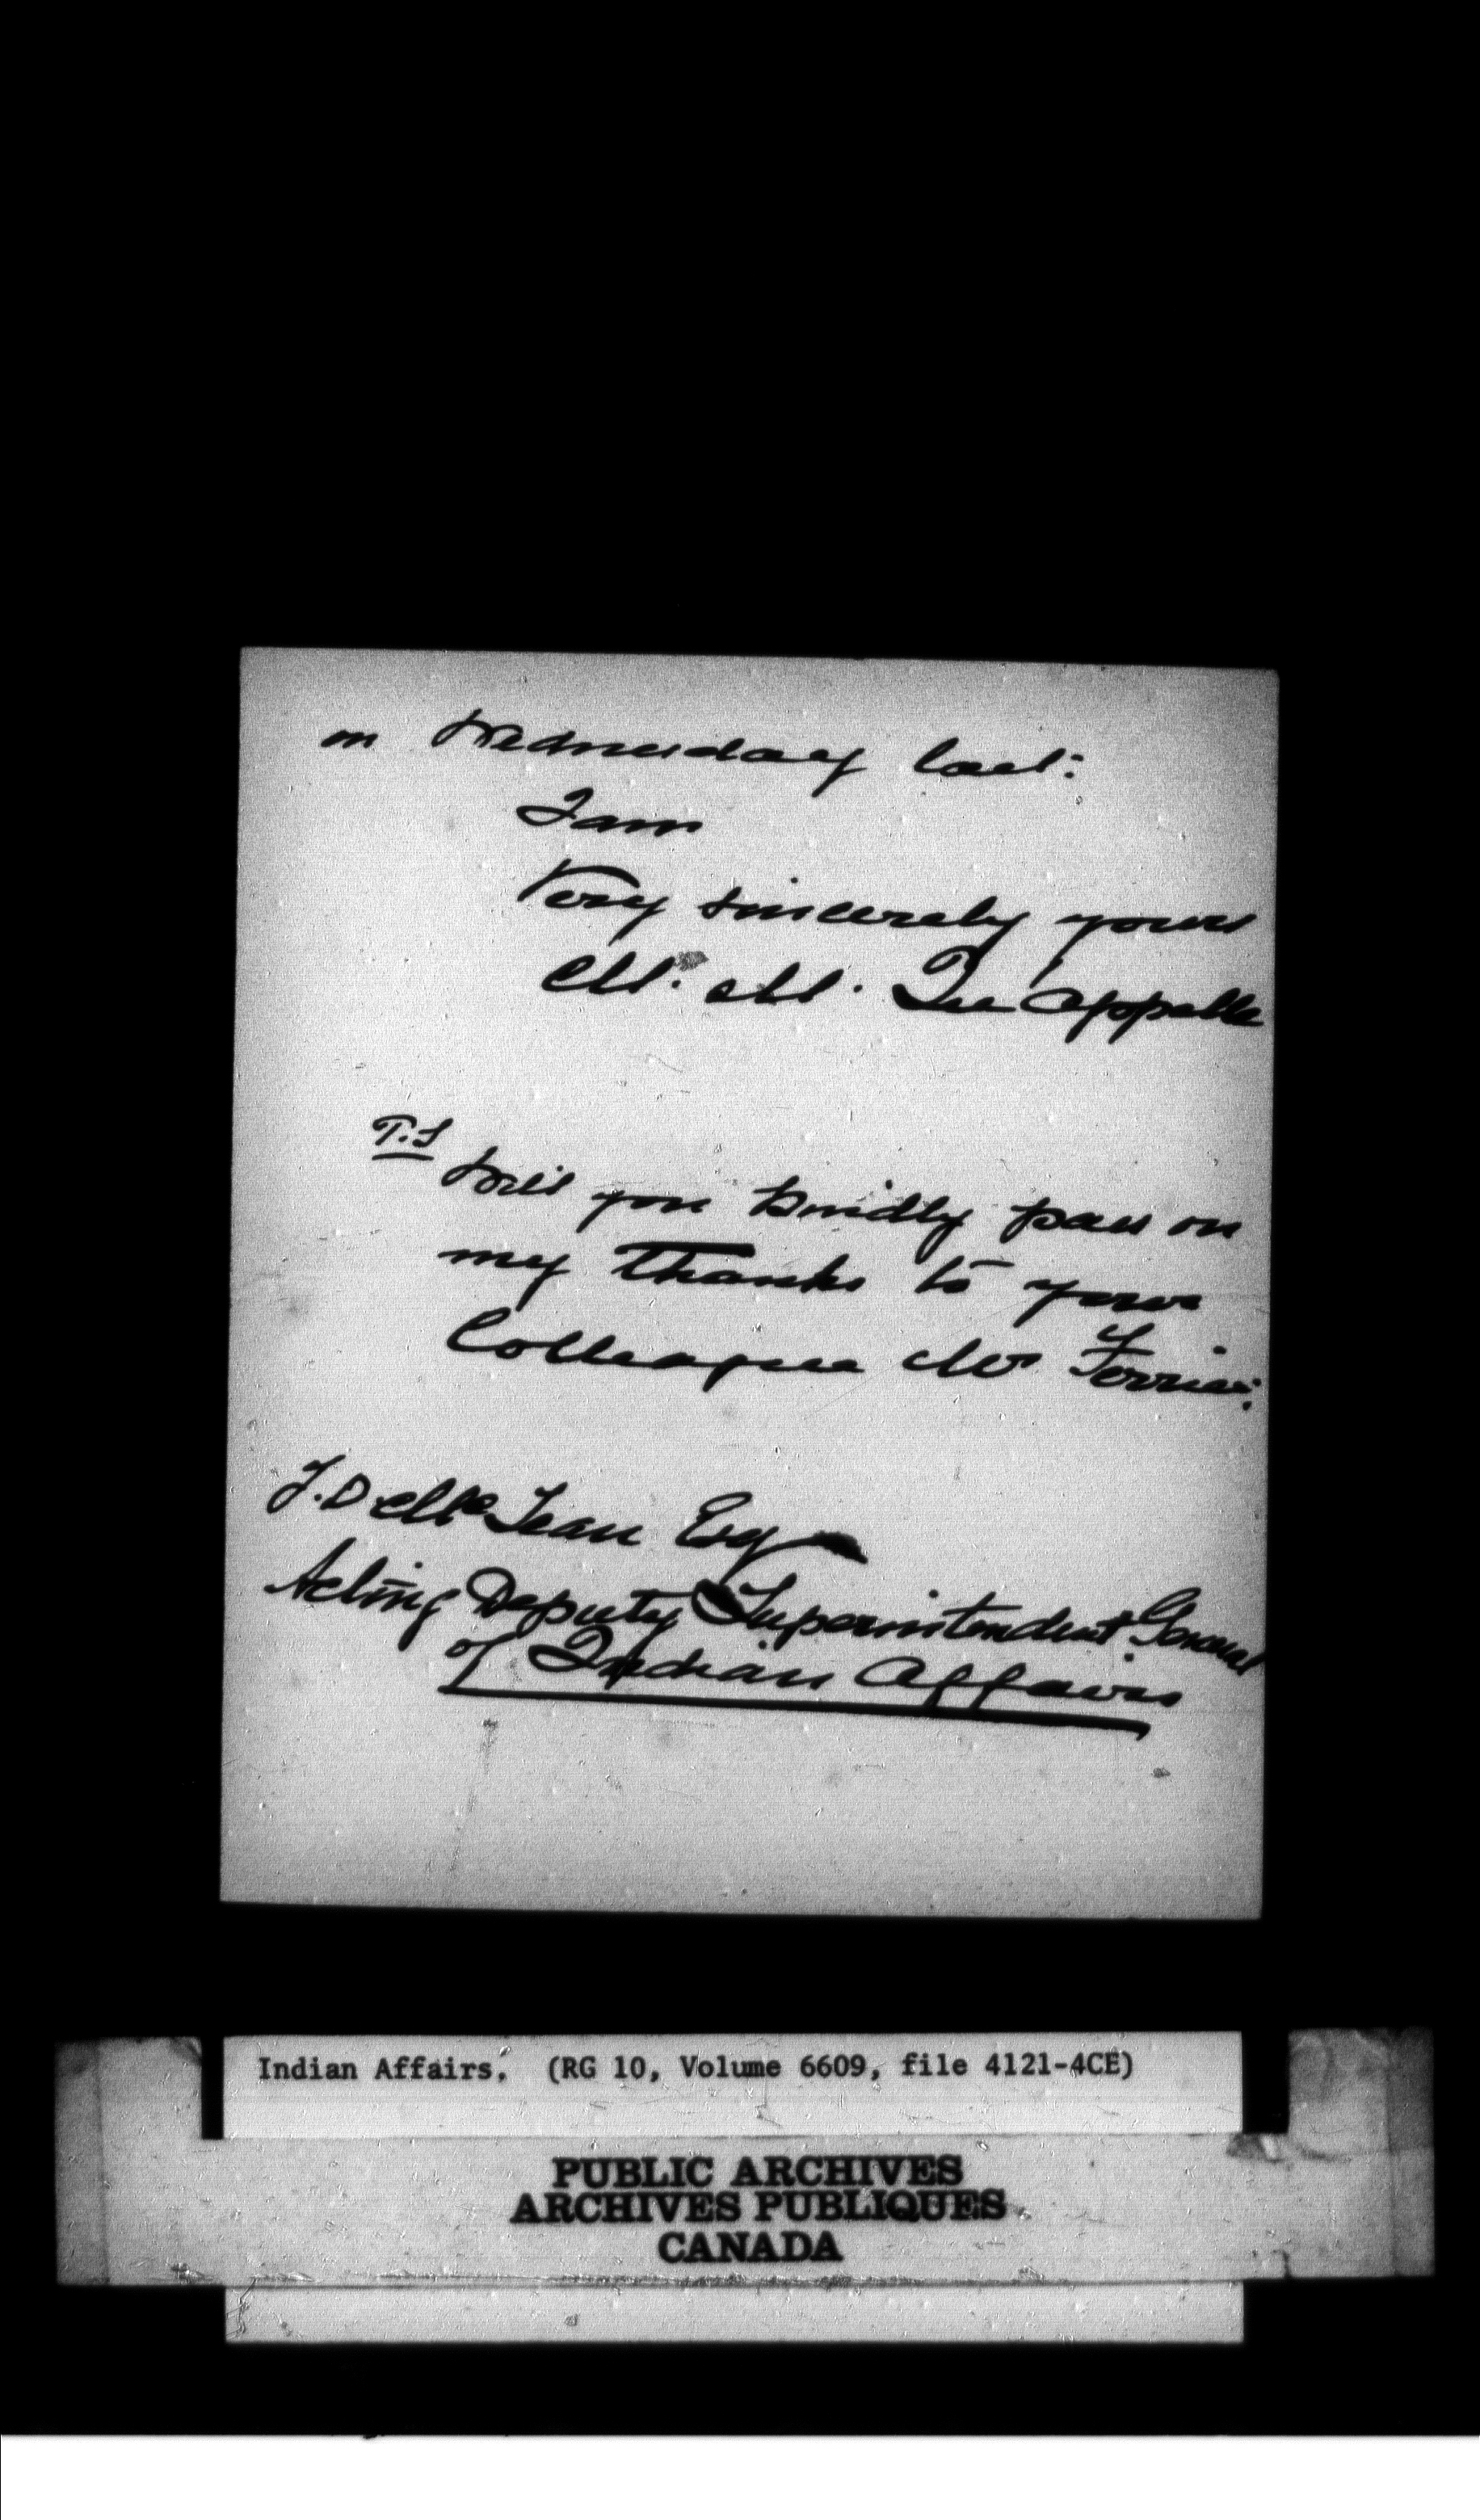 on Wednesday last:
I am
Very sincerely yours
M. M. Qu'Appelle
P.S
Will you kindly pass on
my thanks to your
Colleague Mr Ferrier:
J. D McLean Esq
Acting Deputy Superintendent General
of Indian Affairs
Indian Affairs. (RG 10, Volume 6609, file 4121-4CE)
PUBLIC ARCHIVES
ARCHIVES PUBLIQUES
CANADA